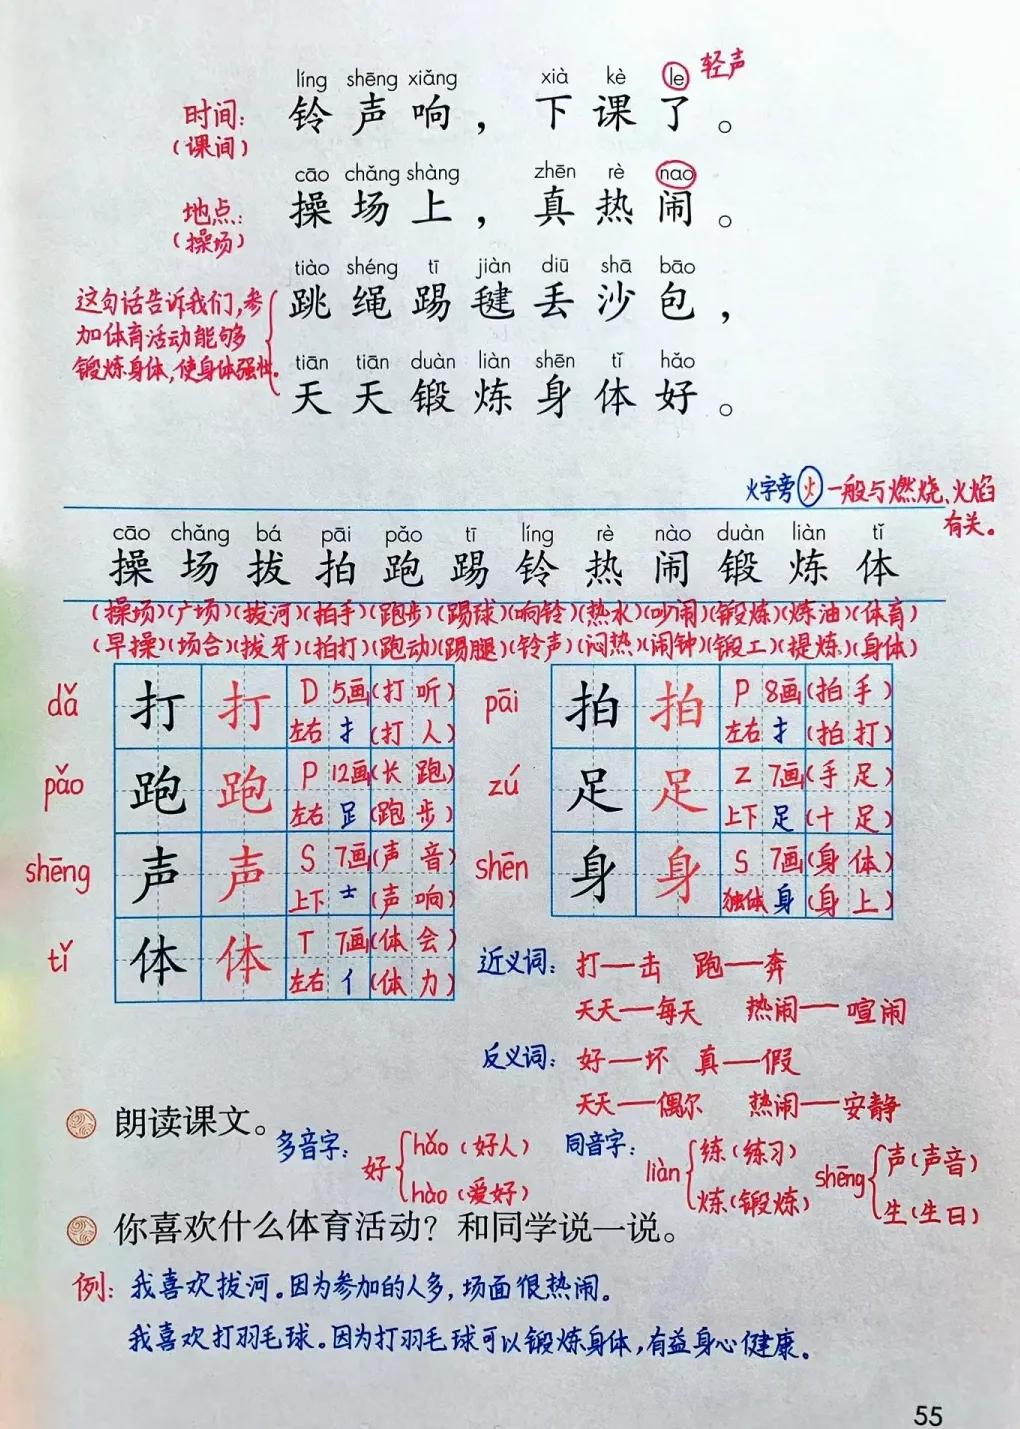 líng shēng xiǎng xià kè le 轻声
时间: 铃声响，下课了。
(课间)
cāo chǎng shàng zhēn rè nao
地点: 操场上，真热闹。
(操场)
tiào shéng tī jiàn diū shā bāo
这句话告诉我们,参 跳绳踢毽丢沙包，
加体育活动能够
锻炼身体,使身体强壮。 tiān tiān duàn liàn shēn tǐ hǎo
天天锻炼身体好。
火字旁 火 一般与燃烧、火焰
有关。
cāo chǎng bá pāi pǎo tī líng rè nào duàn liàn tǐ
操场拔拍跑踢铃热闹锻炼体
(操场)(广场)(拔河)(拍手)(跑步)(踢球)(响铃)(热水)(吵闹)(锻炼)(炼油)(体育)
(早操)(场合)(拔牙)(拍打)(跑动)(踢腿)(铃声)(闷热)(闹钟)(锻工)(提炼)(身体)
dǎ 打 打 D 5画(打听)
左右 扌(打人)
pāi 拍 拍 P 8画(拍手)
左右 扌(拍打)
pǎo 跑 跑 P 12画(长跑)
左右 𧾷(跑步)
zú 足 足 Z 7画(手足)
上下 足(十足)
shēng 声 声 S 7画(声音)
上下 士(声响)
shēn 身 身 S 7画(身体)
独体 身(身上)
tǐ 体 体 T 7画(体会)
左右 亻(体力)
近义词: 打—击 跑—奔
天天—每天 热闹—喧闹
反义词: 好—坏 真—假
天天—偶尔 热闹—安静
朗读课文。
多音字: 好 hǎo(好人)
hào(爱好)
同音字: liàn 练(练习)
炼(锻炼)
shēng 声(声音)
生(生日)
你喜欢什么体育活动？和同学说一说。
例: 我喜欢拔河。因为参加的人多,场面很热闹。
我喜欢打羽毛球。因为打羽毛球可以锻炼身体,有益身心健康。
55